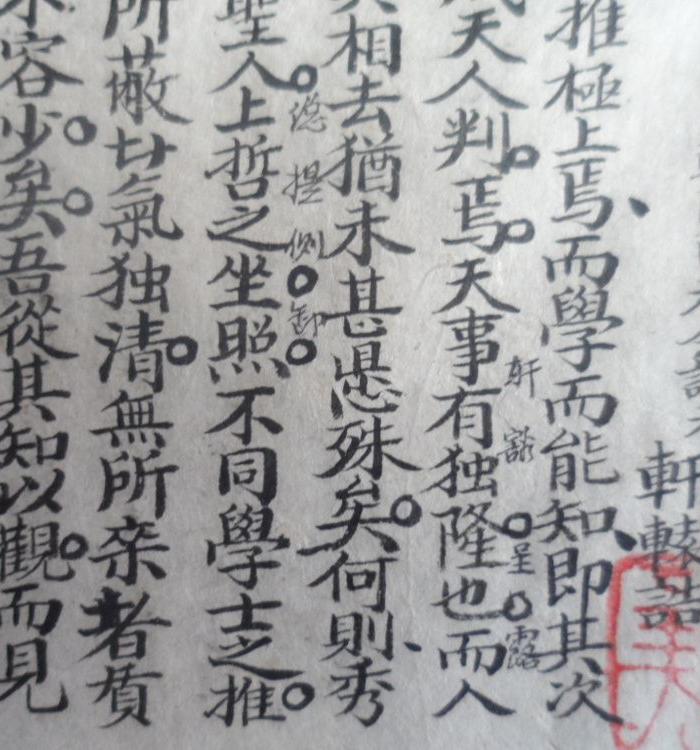 軒轅誥
推極上焉而學而能知即其次
天人判焉天事有独隆也而人
軒豁呈乃露
相去猶未甚懸殊矣何則秀
總提側卸
聖人上哲之坐照不同學士之推
所蔽廿氣独清無所亲者質
容少矣吾從其知以觀而見